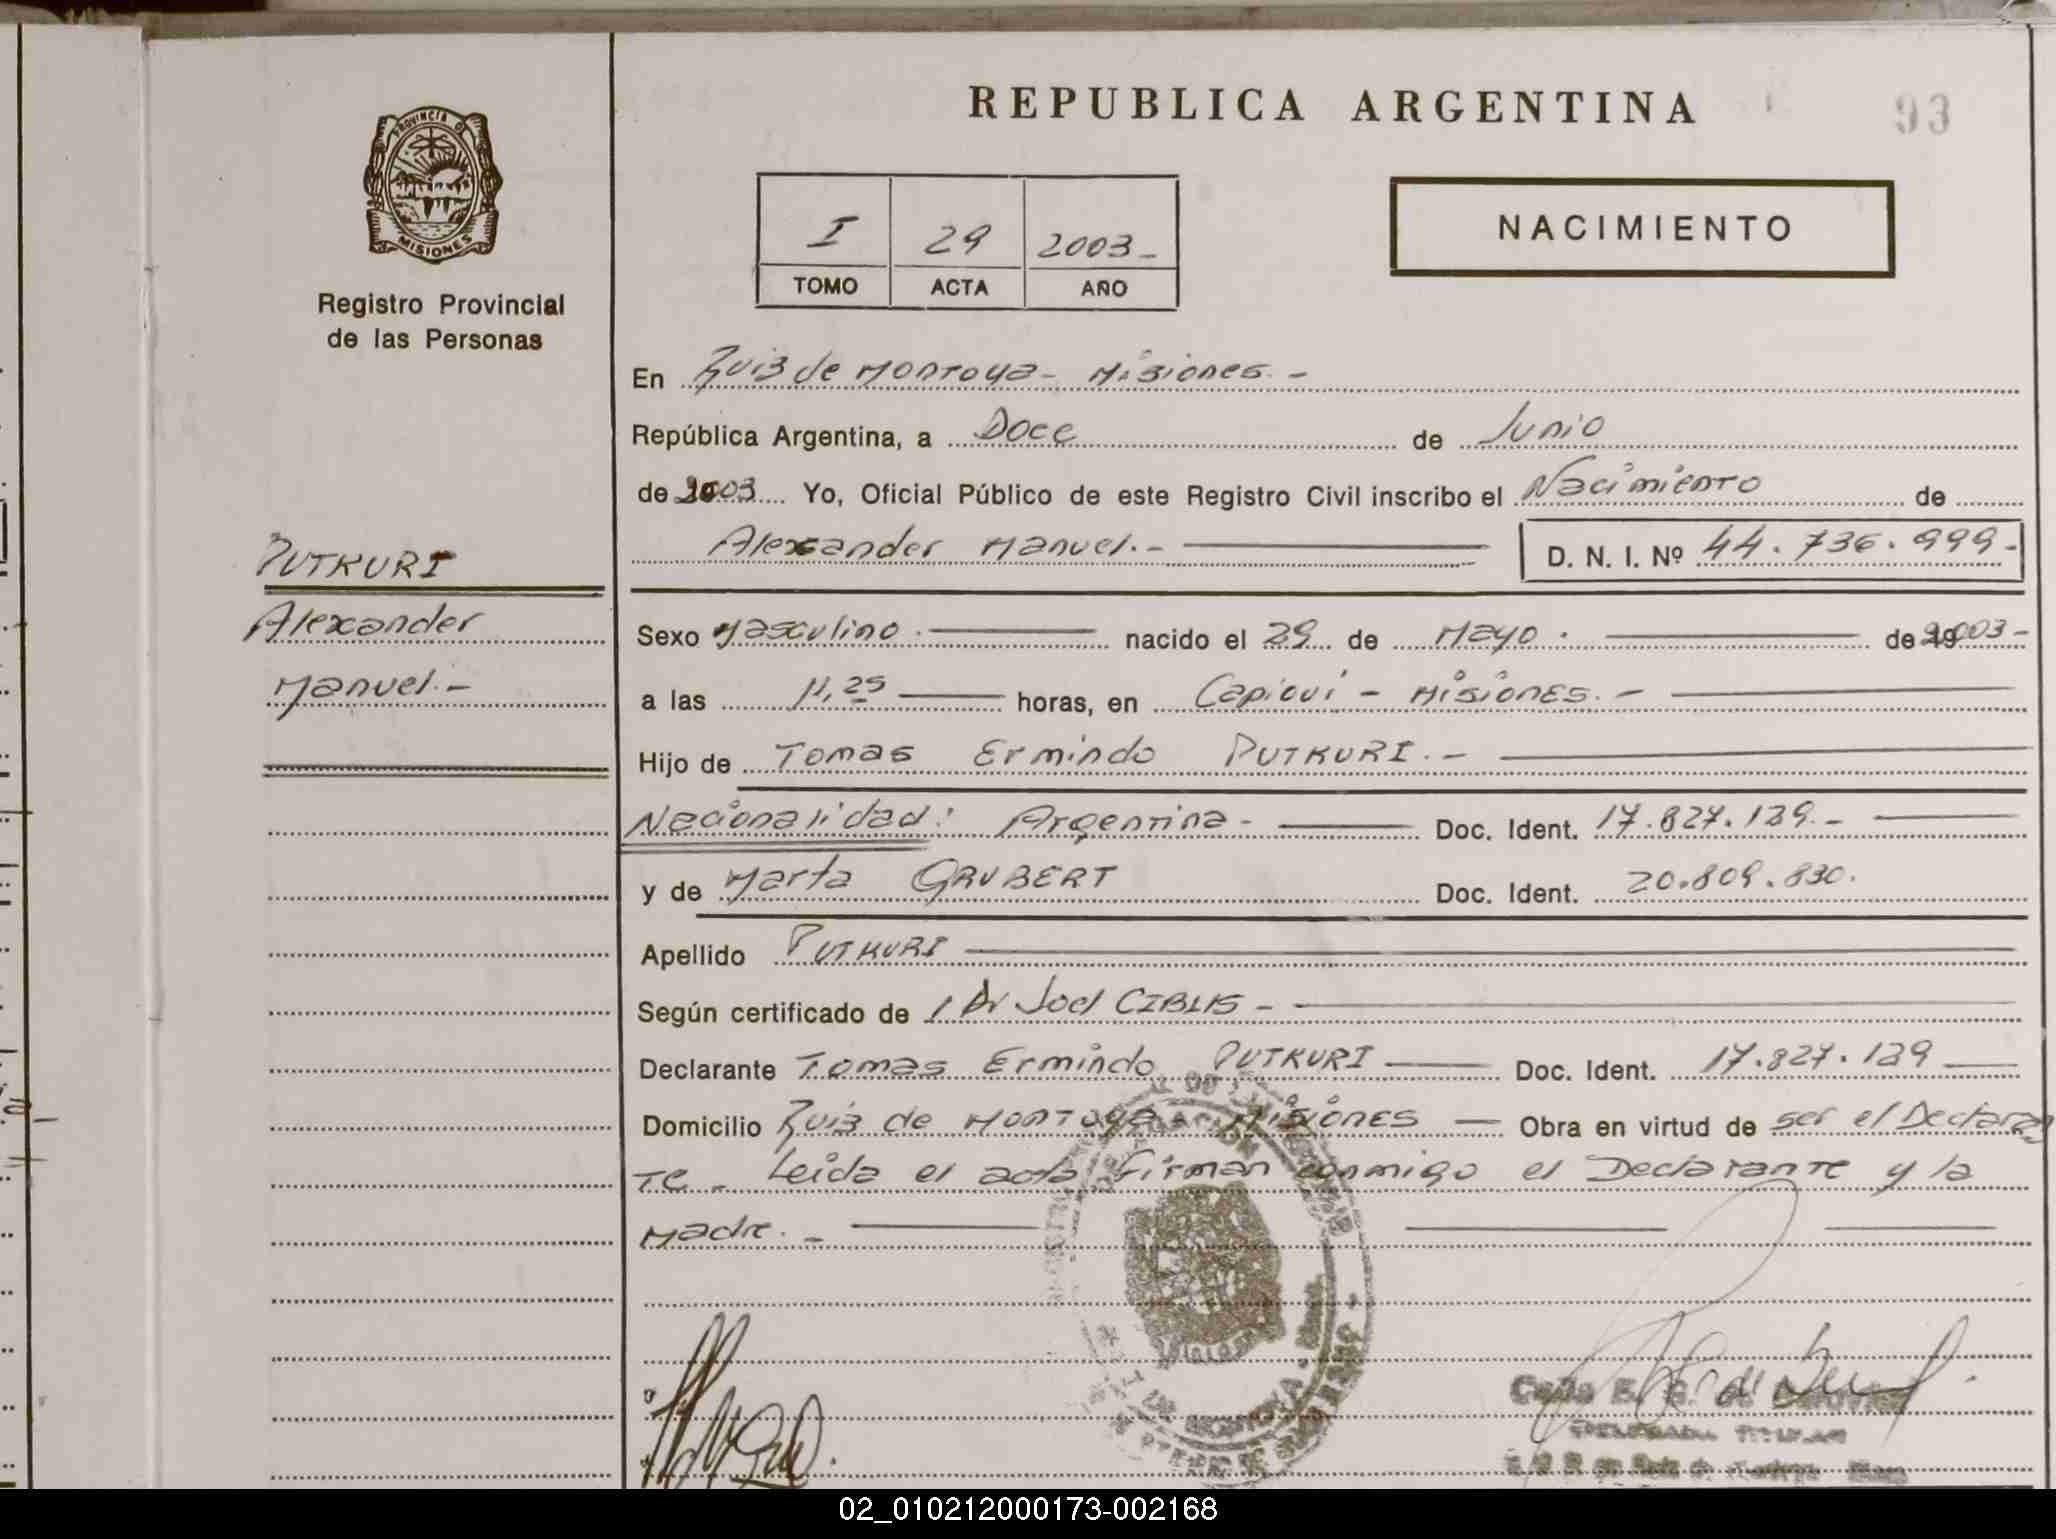 REPUBLICA ARGENTINA
93
PROVINCIA D
MISIONES
Registro Provincial
de las Personas
I 29 2003-
TOMO ACTA AÑO
NACIMIENTO
En Ruiz de Montoya - Misiones. -
República Argentina, a Doce de Junio
de 2003 Yo, Oficial Público de este Registro Civil inscribo el Nacimiento de
Alexander Manuel.- D. N. I. Nº 44.736.999-
PUTKURI
Alexander
Manuel.-
Sexo Masculino. nacido el 29 de Mayo. de 2003-
a las 11,25 horas, en Capioví - Misiones. -
Hijo de Tomas Ermindo PUTKURI.-
Nacionalidad: Argentina- Doc. Ident. 17.827.129.-
y de Marta GRUBERT Doc. Ident. 20.809.830.
Apellido PUTKURI
Según certificado de Dr Joel CIBLIS -
Declarante Tomas Ermindo PUTKURI Doc. Ident. 17.827.129
Domicilio Ruiz de Montoya Misiones Obra en virtud de ser el Declaran
te. Leida el acta firman conmigo el Declarante y la
Madre. -
02_010212000173-002168